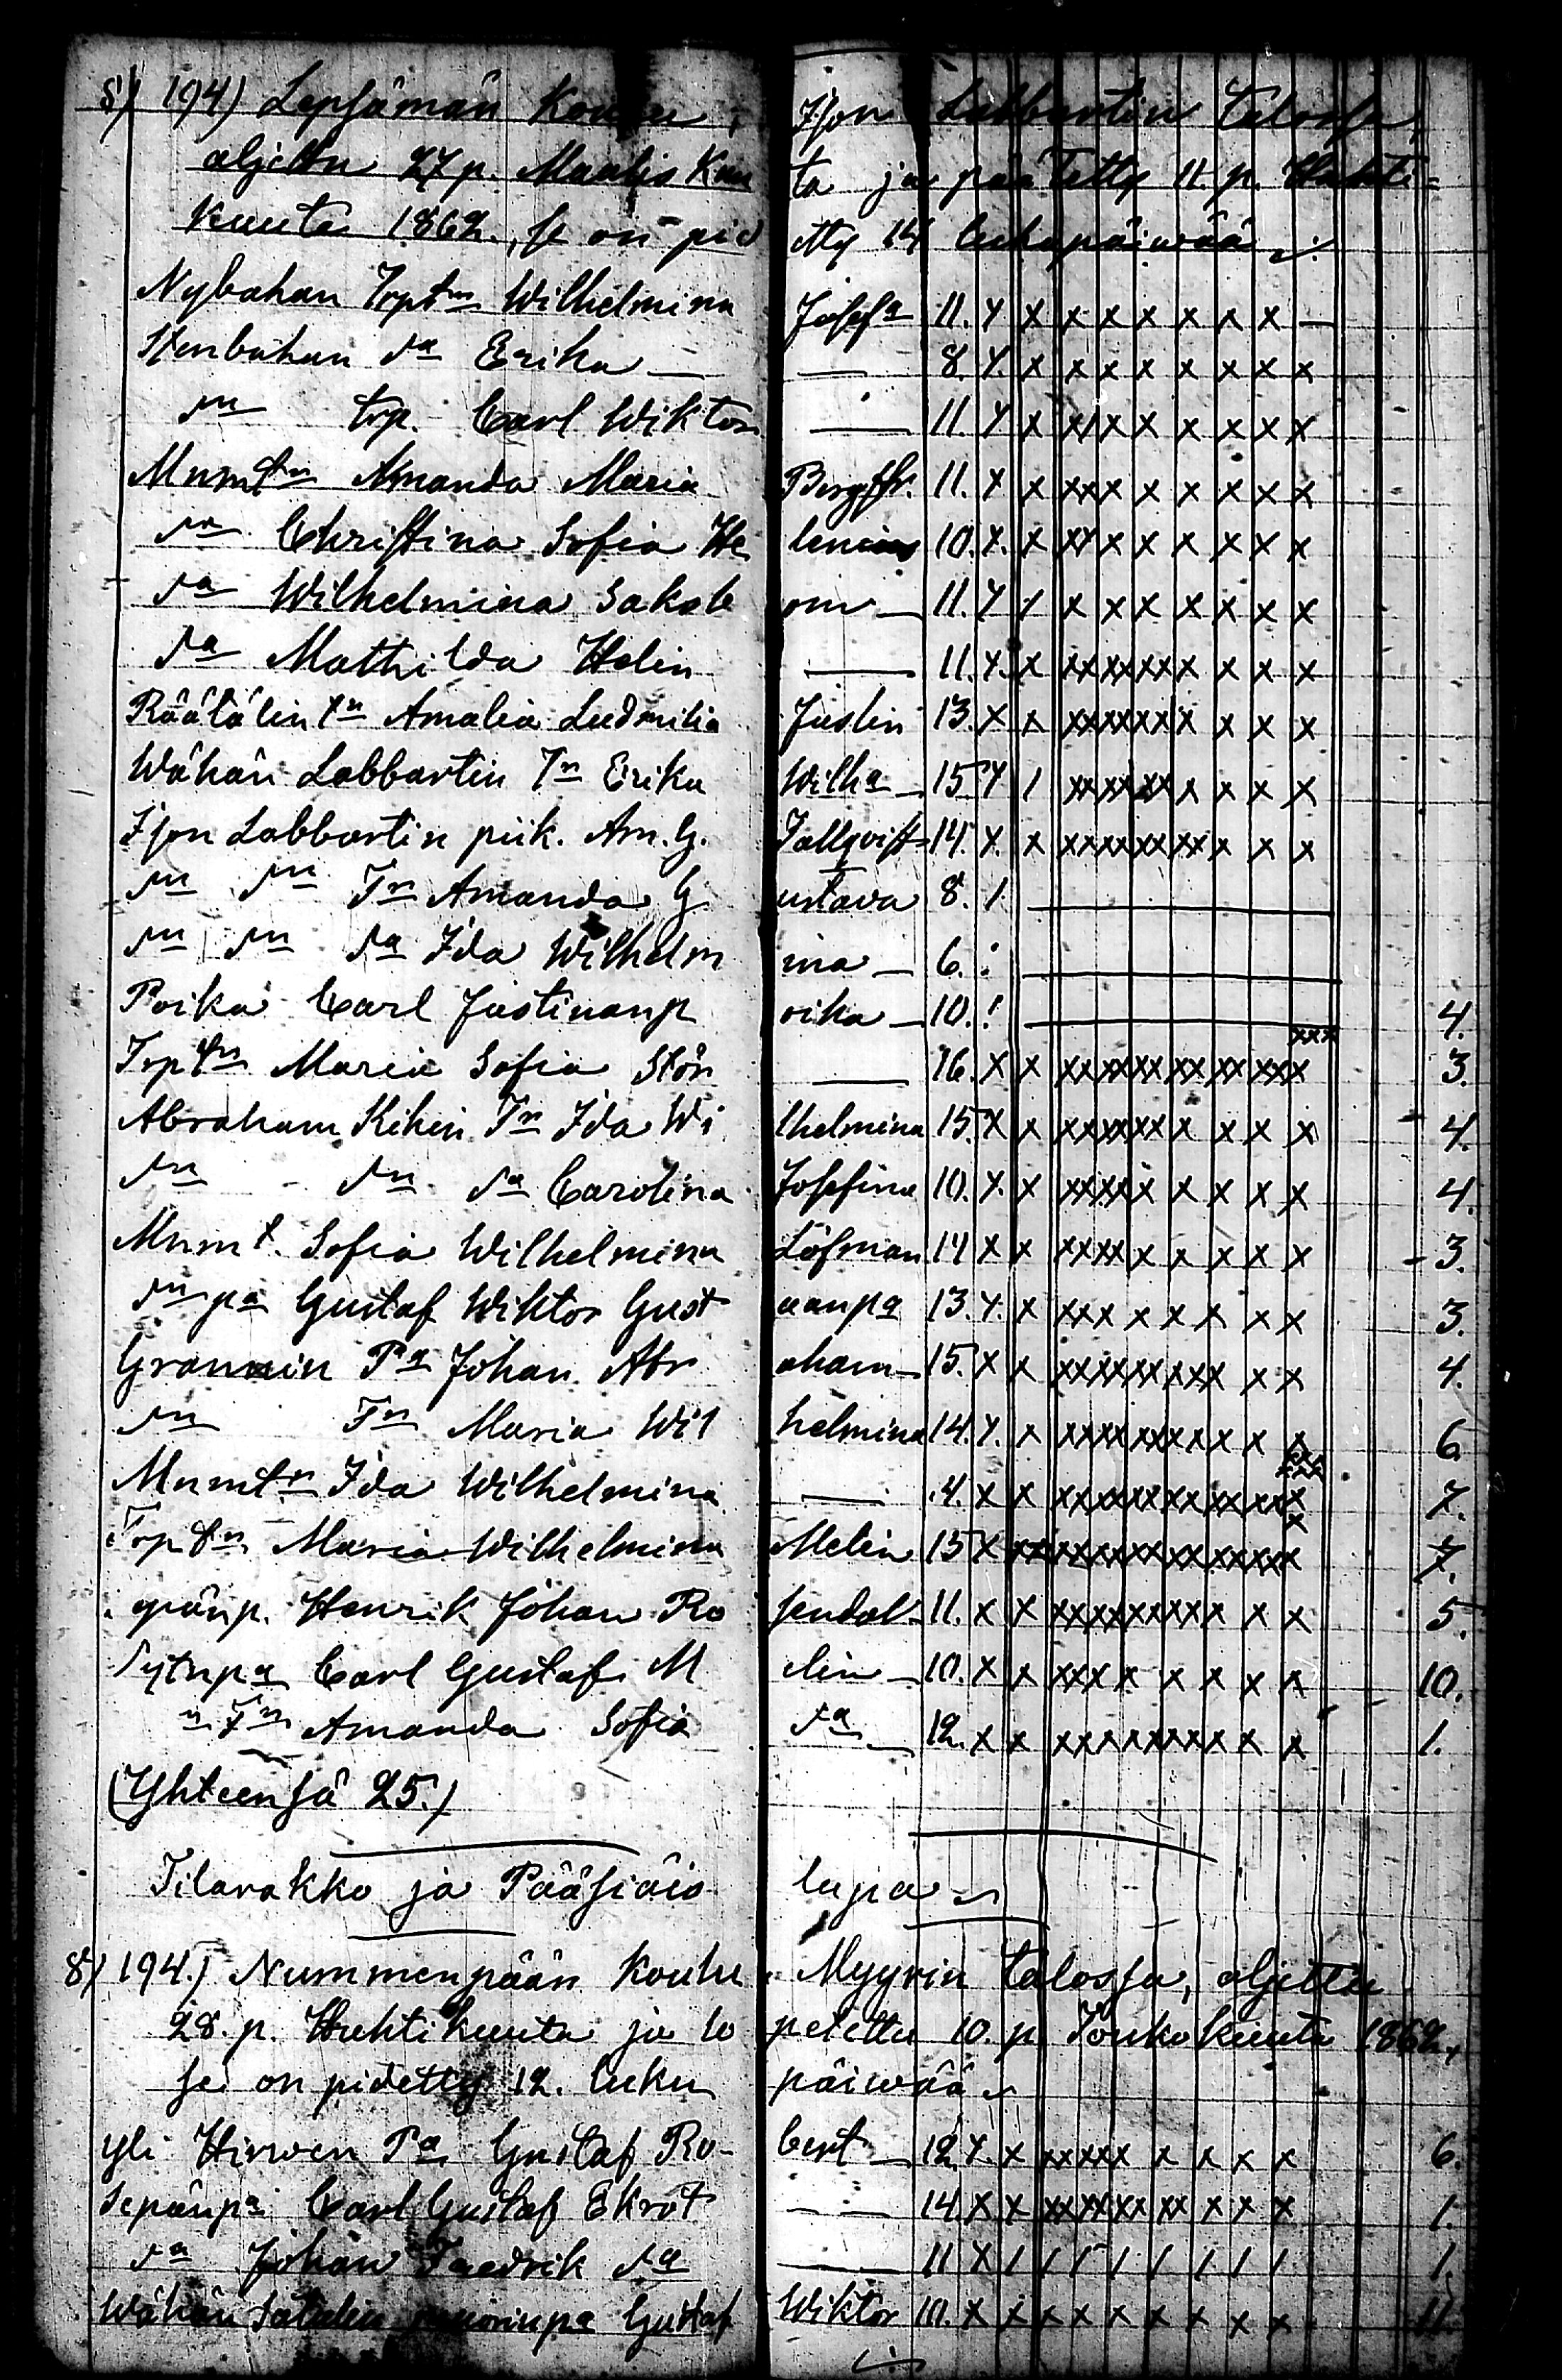 8) 194) Lepsämän Koulu, Ison Labbartin talossa,
aljettu 27 p. Maalis Kuuta ja päätetty 11. p. Huhti=
kuuta 1862., se on pidetty 14 lukupäiwää
Nybakan Torptn Wilhelmina Josefa 11. x x x x x x x x —
Stenbakan da Erika — — 8. x. x x x x x x x x
dn trp. Carl Wiktor — 11. x x xx x x x x x x
Mumtn Amanda Maria Bergstr. 11. x x xxx x x x x x
da Christina Sofia Helenius 10. x. x xx x x x x x x
da Wilhelmina Sakale om — 11. x / x x x x x x x
da Mathilda Helin — 11. x. x xxxxxxx x x x
Räätälin tn Amalia Ludmilia Justin 13. x x xxxxxxx x x x
Wähän Labbartin Tn Erika Wilha — 15 x / xxxxxx x x x x
Ison Labbartin piik. Am. G. Tallqvist 14. x. x xxxxxxxx x x x
dn dn Tn Amanda Gustava 8. /. —
dn dn da Ida Wilhelmina — 6. : —
Poika Carl Justinanpoika — 10. ! — 4.
Torptn Maria Sofia Stön — 16. x x xxxxxxxxxxxx 3.
Abraham Kihin Tn Ida Wilhelmina 15. x x xxxxxx x x x x 4.
dn - dn da Carolina Josefina 10. x. x xxxxx x x x x 4.
Mumt. Sofia Wilhelmina Löfman 14 x x xxxx x x x x x 3.
dn pa Gustaf Wiktor Gustaanpa 13. x. x xxx x x x x x 3.
Grannin Pa Johan Abraham — 15. x x xxxxxxxxx x x 4.
dn Tn Maria Wilhelmina 14. x. x xxxxxxxx x x x 6
Mumtn Ida Wilhelmina — 4. x x xxxxxxxxxxxxx 7.
Torptn Maria Wilhelmina Melin 15 x xxxxxxxxxxxxxx 7.
Henrik Johan Rosendal 11. x x xxxxxxxxx x x 5.
Carl Gustaf Melin — 10. x x xxx x x x x x 10.
n Tn Amanda Sofia da — 12. x x xxxxxxxxx x x 1.
(Yhteensä 25.)
Tilavakko ja Pääsiäis lupa
8) 194.) Nummenpään Koulu, Myyrin talossa, aljettu
28. p. Huhtikuuta ja lopetettu 10. p. Toukokuuta 1862,
se on pidetty 12. luku päiwää
Yli Hirwen Pa Gustaf Robert — 12. x. x xxxxx x x x x 6.
Sepänpa Carl Gustaf Ekrot — 14. x x xxxxxxx x x x 1.
da Johan Fredrik da — 11 x / / / / / / / / 1.
Wähän Gustaf Wiktor 10. x x x x x x x x x 11.